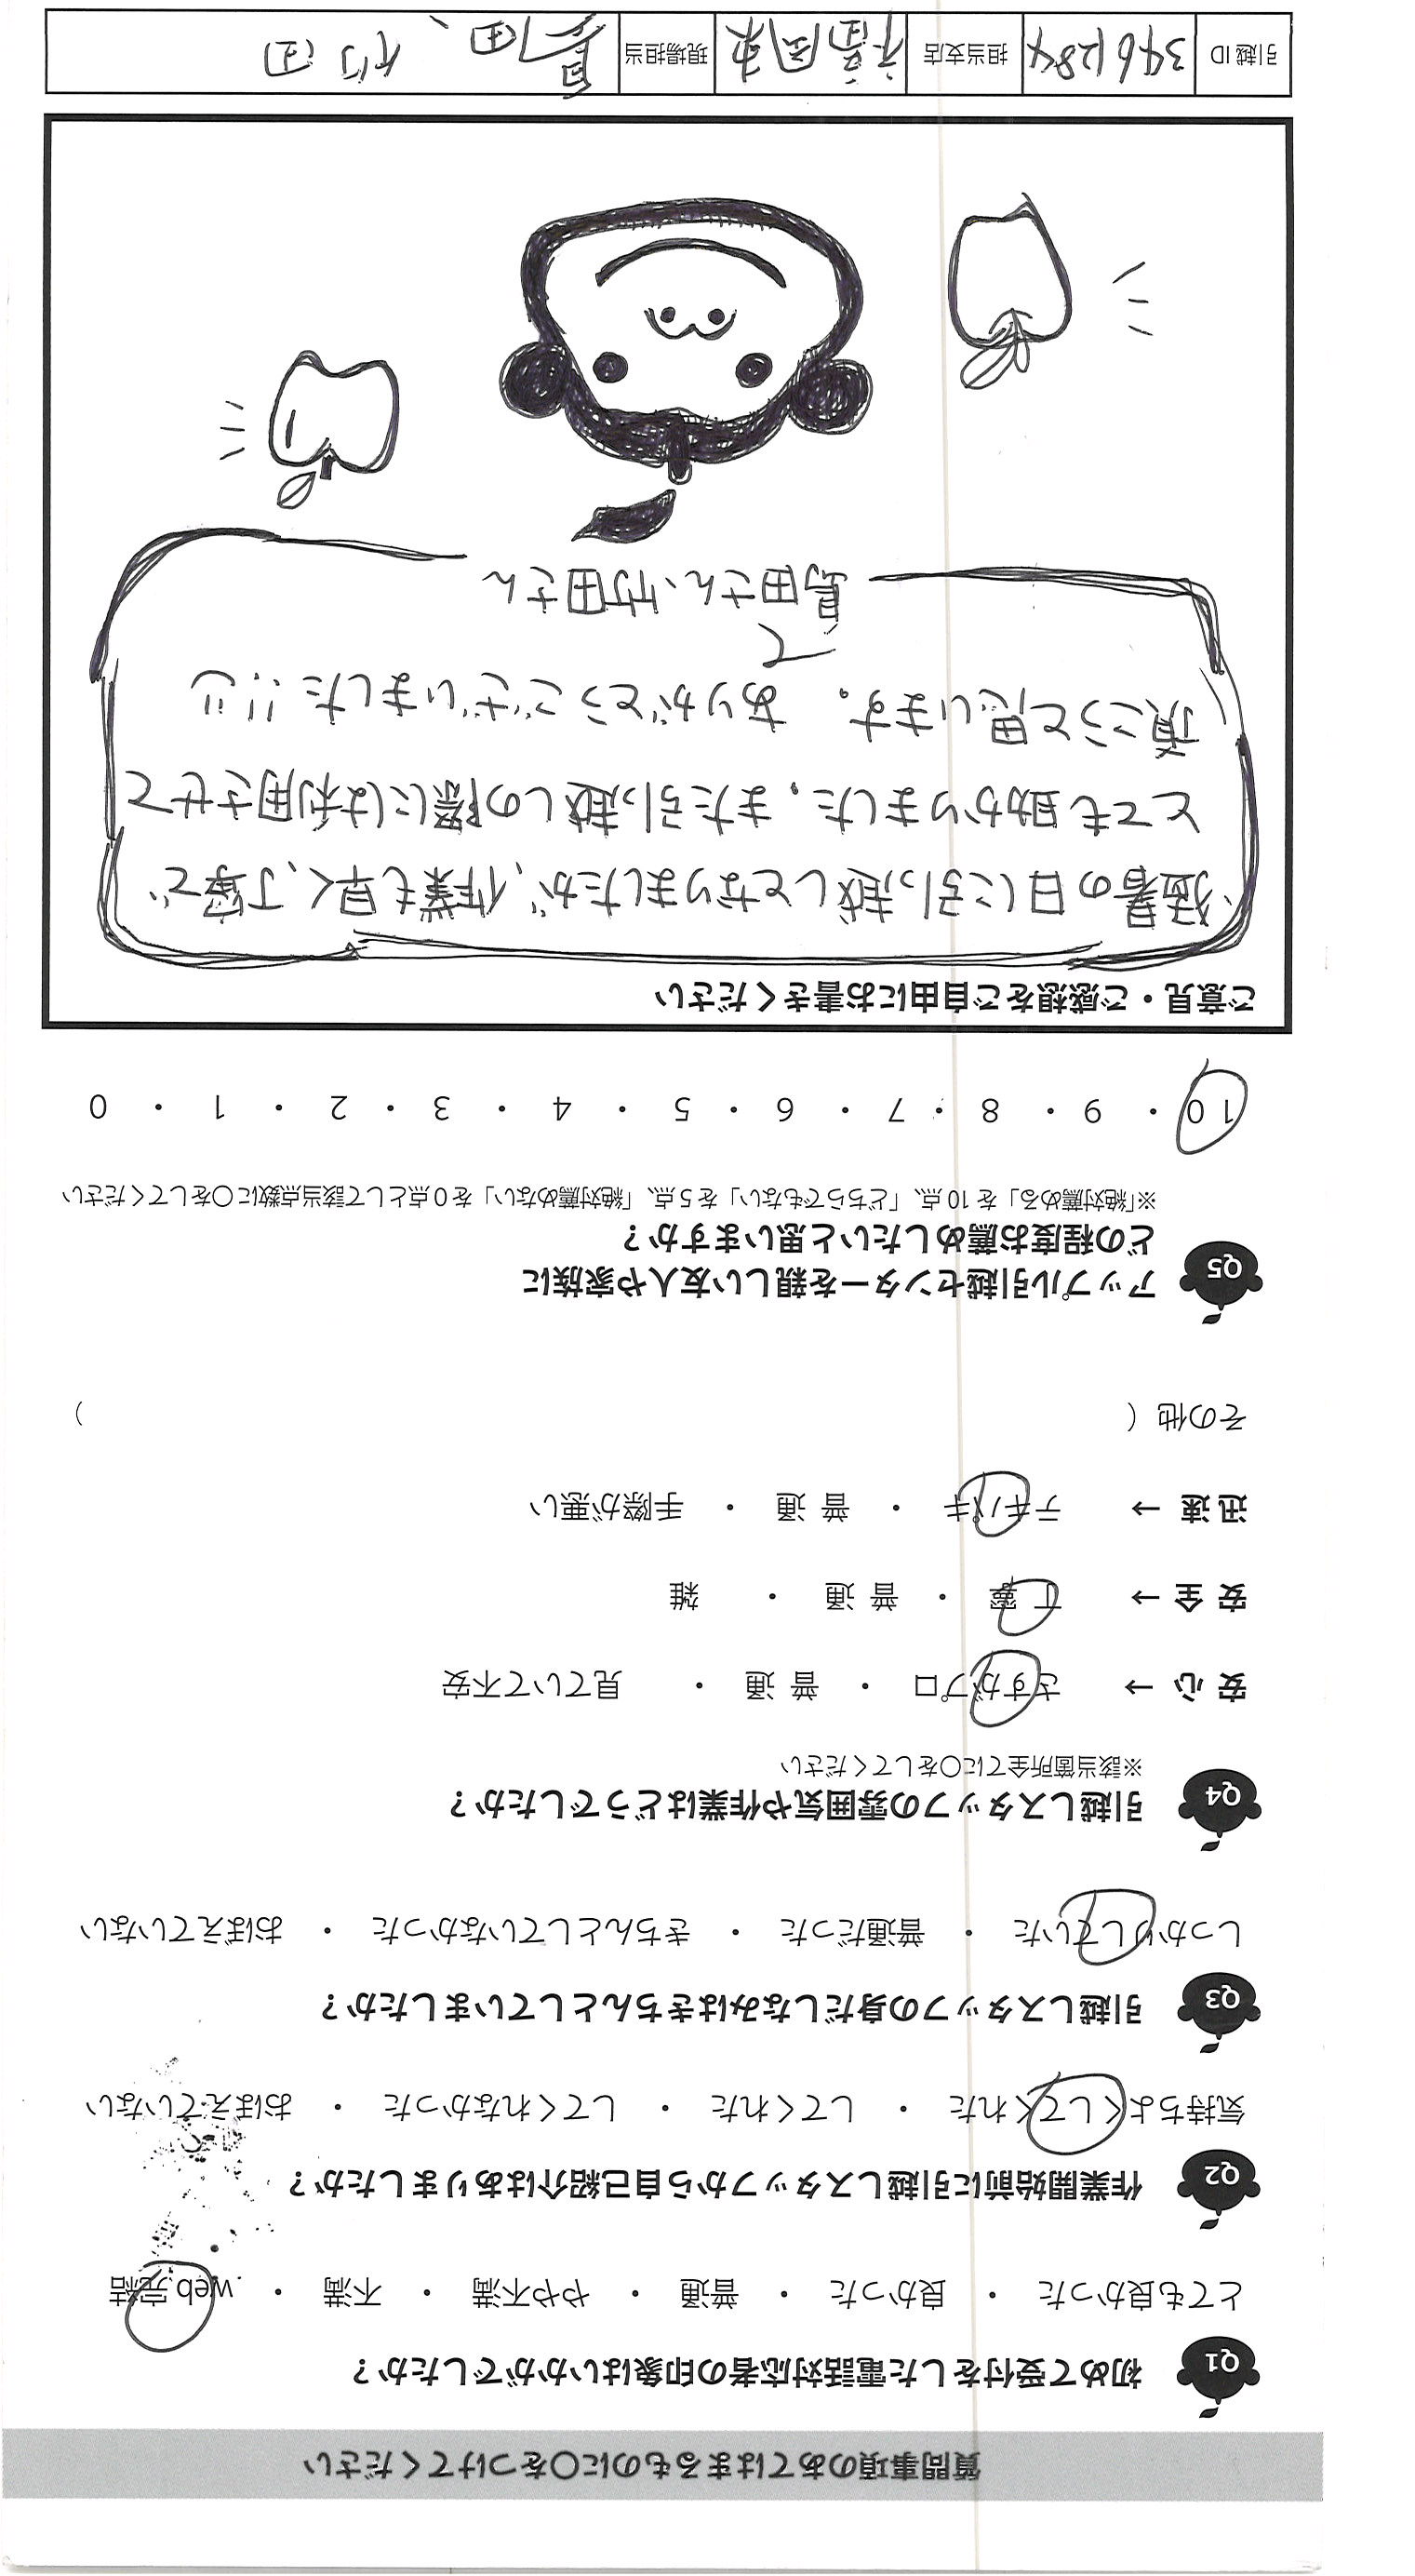 質問事項のあてはまるものに〇をつけてください
Q1 初めて受付をした電話対応者の印象はいかがでしたか？
とても良かった ・ 良かった ・ 普通 ・ やや不満 ・ 不満 ・ web 完結
Q2 作業開始前に引越しスタッフから自己紹介はありましたか？
気持ちよくしてくれた ・ してくれた ・ してくれなかった ・ おぼえていない
Q3 引越しスタッフの身だしなみはきちんとしていましたか？
しっかりしていた ・ 普通だった ・ きちんとしていなかった ・ おぼえていない
Q4 引越しスタッフの雰囲気や作業はどうでしたか？
※該当箇所全てに〇をしてください
安心 → さすがプロ ・ 普通 ・ 見ていて不安
安全 → 丁寧 ・ 普通 ・ 雑
迅速 → テキパキ ・ 普通 ・ 手際が悪い
その他（ ）
Q5 アップル引越センターを親しい友人や家族に
どの程度お薦めしたいと思いますか？
※「絶対薦める」を10点、「どちらでもない」を5点、「絶対薦めない」を0点として該当点数に〇をしてください
10 ・ 9 ・ 8 ・ 7 ・ 6 ・ 5 ・ 4 ・ 3 ・ 2 ・ 1 ・ 0
ご意見・ご感想をご自由にお書きください
猛暑の日に引っ越しとなりましたが、作業も早く、丁寧で
とても助かりました。また引っ越しの際には利用させて
頂こうと思います。ありがとうございました!!
島田さん、竹田さん
て
引越ID 3961284 担当支店 福岡東 現場担当 島田、竹田